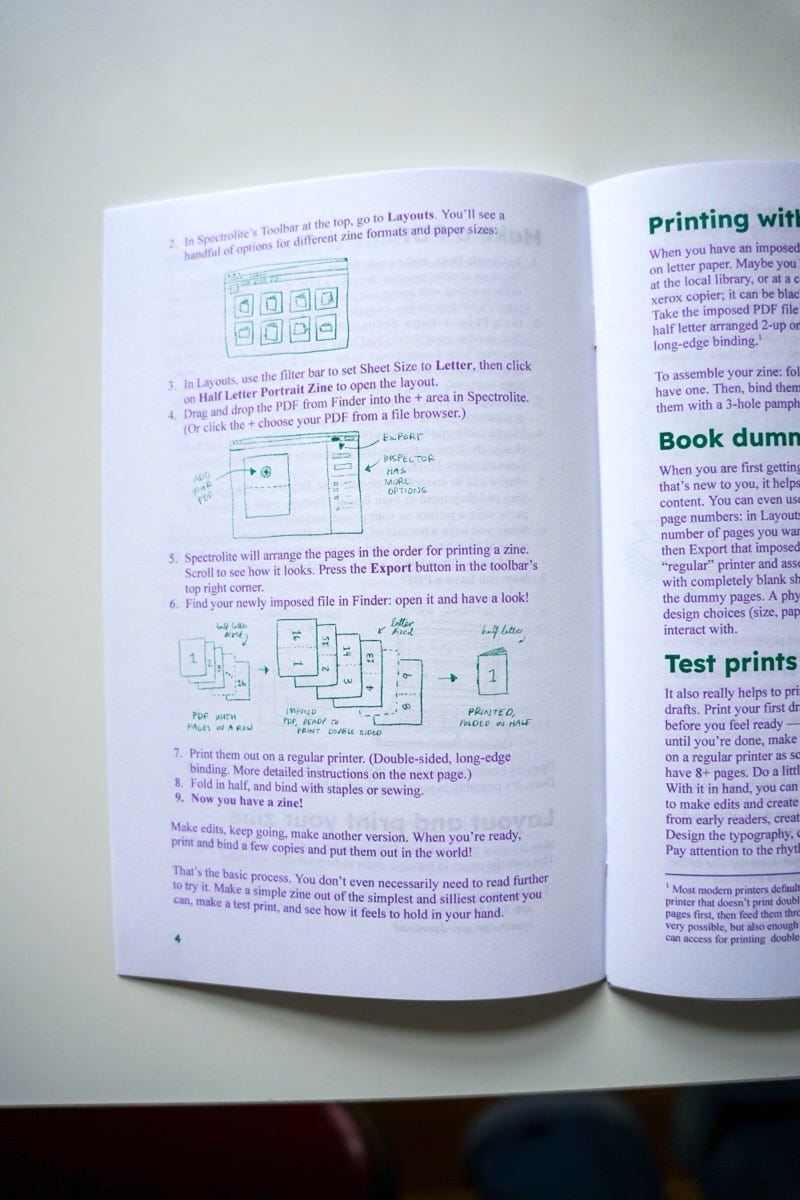 2. In Spectrolite's Toolbar at the top, go to Layouts. You'll see a
handful of options for different zine formats and paper sizes:
3. In Layouts, use the filter bar to set Sheet Size to Letter, then click
on Half Letter Portrait Zine to open the layout.
4. Drag and drop the PDF from Finder into the + area in Spectrolite.
(Or click the + choose your PDF from a file browser.)
ADD
YOUR
PDF
EXPORT
INSPECTOR
HAS
MORE
OPTIONS
5. Spectrolite will arrange the pages in the order for printing a zine.
Scroll to see how it looks. Press the Export button in the toolbar's
top right corner.
6. Find your newly imposed file in Finder: open it and have a look!
half letter
sized
1
2
3
16
PDF WITH
PAGES IN A ROW
letter
sized
16
1
15
2
14
3
13
4
9
8
IMPOSED
PDF, READY TO
PRINT DOUBLE SIDED
half letter
1
PRINTED,
FOLDED IN HALF
7. Print them out on a regular printer. (Double-sided, long-edge
binding. More detailed instructions on the next page.)
8. Fold in half, and bind with staples or sewing.
9. Now you have a zine!
Make edits, keep going, make another version. When you're ready,
print and bind a few copies and put them out in the world!
That's the basic process. You don't even necessarily need to read further
to try it. Make a simple zine out of the simplest and silliest content you
can, make a test print, and see how it feels to hold in your hand.
4
Printing
When you have an imposed
on letter paper. Maybe you
at the local library, or at a
xerox copier; it can be
Take the imposed PDF file
half letter arranged 2-up
long-edge binding.¹
To assemble your zine:
have one. Then, bind them
them with a 3-hole
Book
When you are first getting
that's new to you, it helps
content. You can even
page numbers: in
number of pages you
then Export that imposed
"regular" printer and
with completely blank
the dummy pages. A
design choices (size,
interact with.
Test prints
It also really helps to
drafts. Print your first
before you feel ready —
until you're done, make
on a regular printer as
have 8+ pages. Do a
With it in hand, you can
to make edits and create
from early readers,
Design the typography,
Pay attention to the
¹ Most modern printers
printer that doesn't print
pages first, then feed them
very possible, but also enough
can access for printing double